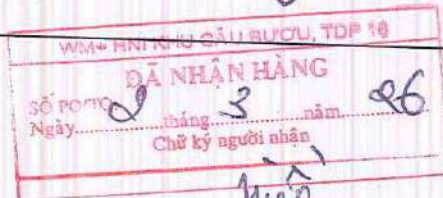 WM+ HNI KHU CẦU BƯƠU, TDP 16
ĐÃ NHẬN HÀNG
SỐ PO/TO
Ngày 2 tháng 3 năm 26
Chữ ký người nhận